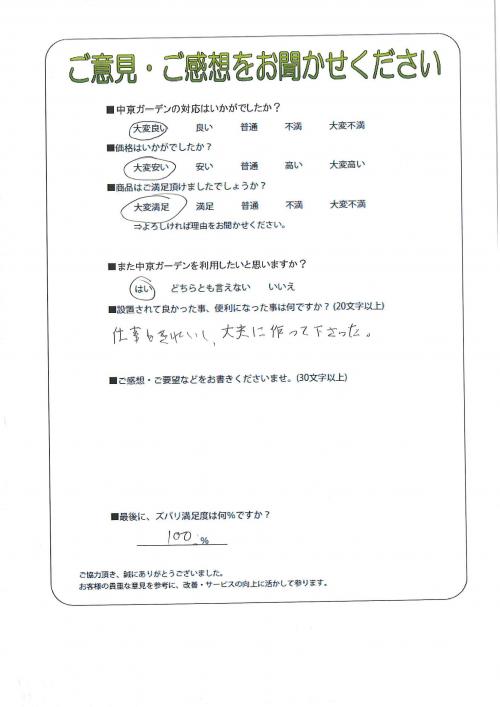 ご意見・ご感想をお聞かせください
■中京ガーデンの対応はいかがでしたか？
大変良い 良い 普通 不満 大変不満
■価格はいかがでしたか？
大変安い 安い 普通 高い 大変高い
■商品はご満足頂けましたでしょうか？
大変満足 満足 普通 不満 大変不満
⇒よろしければ理由をお聞かせください。
■また中京ガーデンを利用したいと思いますか？
はい どちらとも言えない いいえ
■設置されて良かった事、便利になった事は何ですか？(20文字以上)
仕事もきれいし、大夫に作って下さった。
■ご感想・ご要望などをお書きくださいませ。(30文字以上)
■最後に、ズバリ満足度は何%ですか？
100 %
ご協力頂き、誠にありがとうございました。
お客様の貴重な意見を参考に、改善・サービスの向上に活かして参ります。